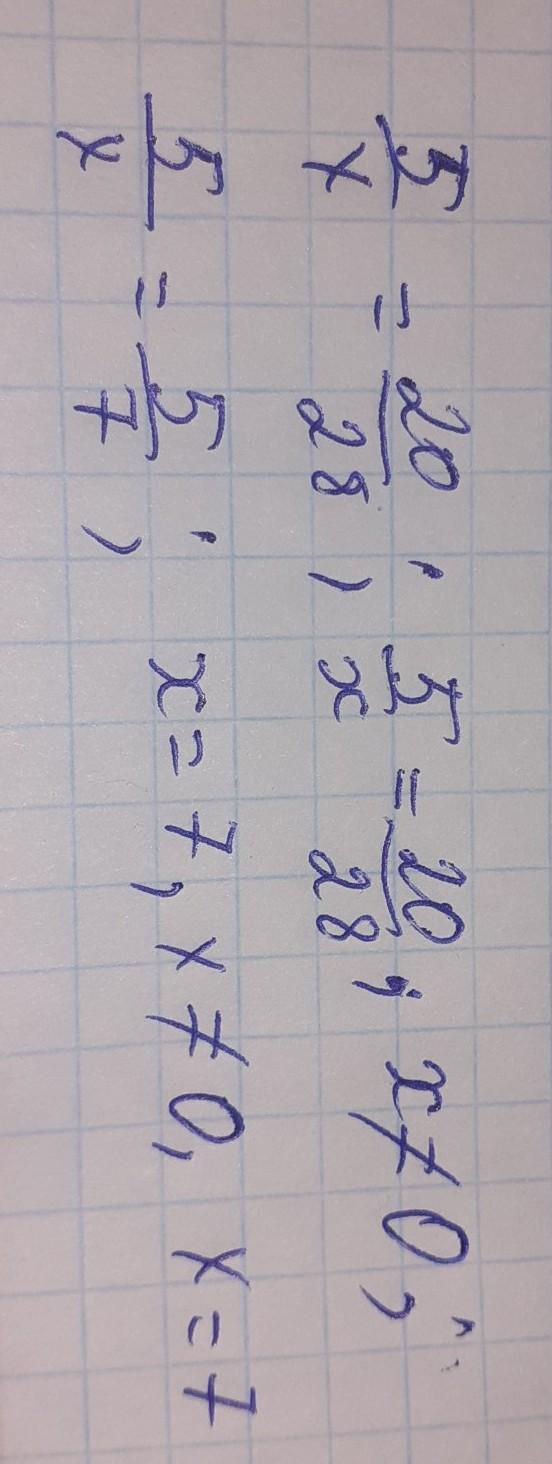 5/x = 20/28; 5/x = 20/28; x ≠ 0;
5/x = 5/7; x = 7, x ≠ 0, x = 7